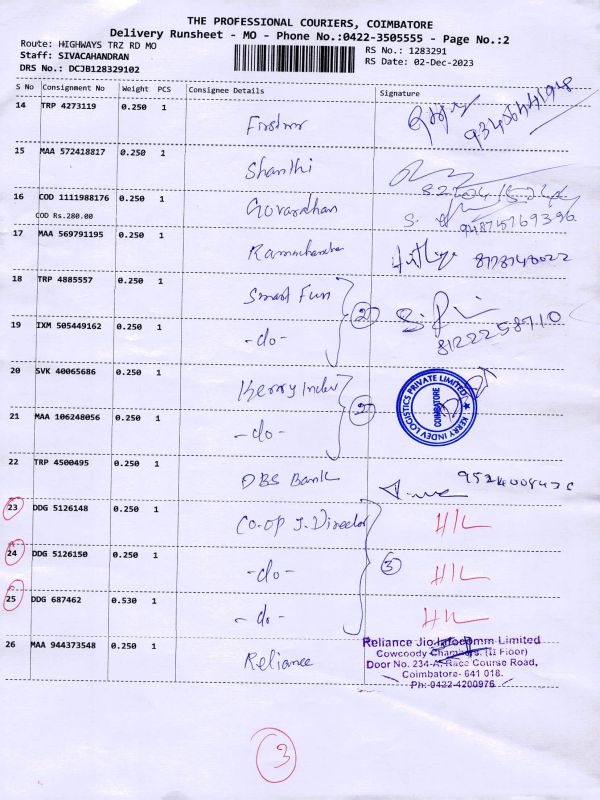 THE PROFESSIONAL COURIERS, COIMBATORE
Delivery Runsheet - MO - Phone No.:0422-3505555 - Page No.:2
Route: HIGHWAYS TRZ RD MO
Staff: SIVACAHANDRAN
DRS No.: DCJB128329102
RS No.: 1283291
RS Date: 02-Dec-2023
S No Consignment No Weight PCS Consignee Details Signature
14 TRP 4273119 0.250 1
15 MAA 572418817 0.250 1 Shanthi
16 COD 1111988176 0.250 1 Govardhan
COD Rs.280.00
9487576939​6
17 MAA 569791195 0.250 1
8778748022
18 TRP 4885557 0.250 1 Smart Fun
2
19 IXM 505449162 0.250 1 -do-
8122258710
20 SVK 40065686 0.250 1 Kerry Indev
KERRY INDEV LOGISTICS PRIVATE LIMITED
COIMBATORE
2
21 MAA 106248056 0.250 1 -do-
22 TRP 4500495 0.250 1 DBS Bank
23 DDG 5126148 0.250 1 CO-OP J. Director H/L
24 DDG 5126150 0.250 1 -do- 3 H/L
25 DDG 687462 0.530 1 -do- H/L
26 MAA 944373548 0.250 1 Reliance
Reliance Jio Infocomm Limited
Cowcoody Chambers, (II Floor)
Door No. 234-A, Race Course Road,
Coimbatore- 641 018.
Ph: 0422-4200976
3